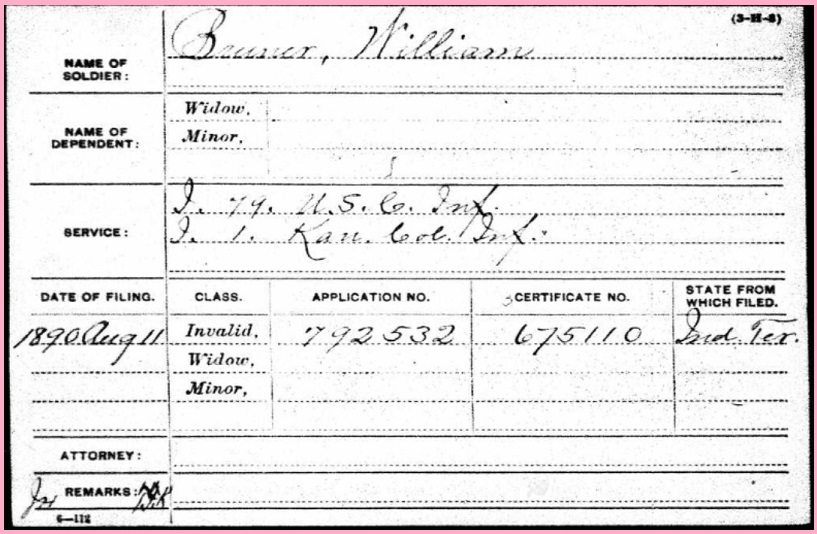 (3-H-8)
NAME OF SOLDIER: Bruner, William
NAME OF DEPENDENT: Widow,
Minor,
SERVICE: I. 79. U.S.C. Inf.
I. 1. Kan. Col. Inf.
DATE OF FILING. CLASS. APPLICATION NO. CERTIFICATE NO. STATE FROM WHICH FILED.
1890 Aug 11 Invalid, 792532 675110 Ind. Ter.
Widow,
Minor,
ATTORNEY:
REMARKS:
6—112